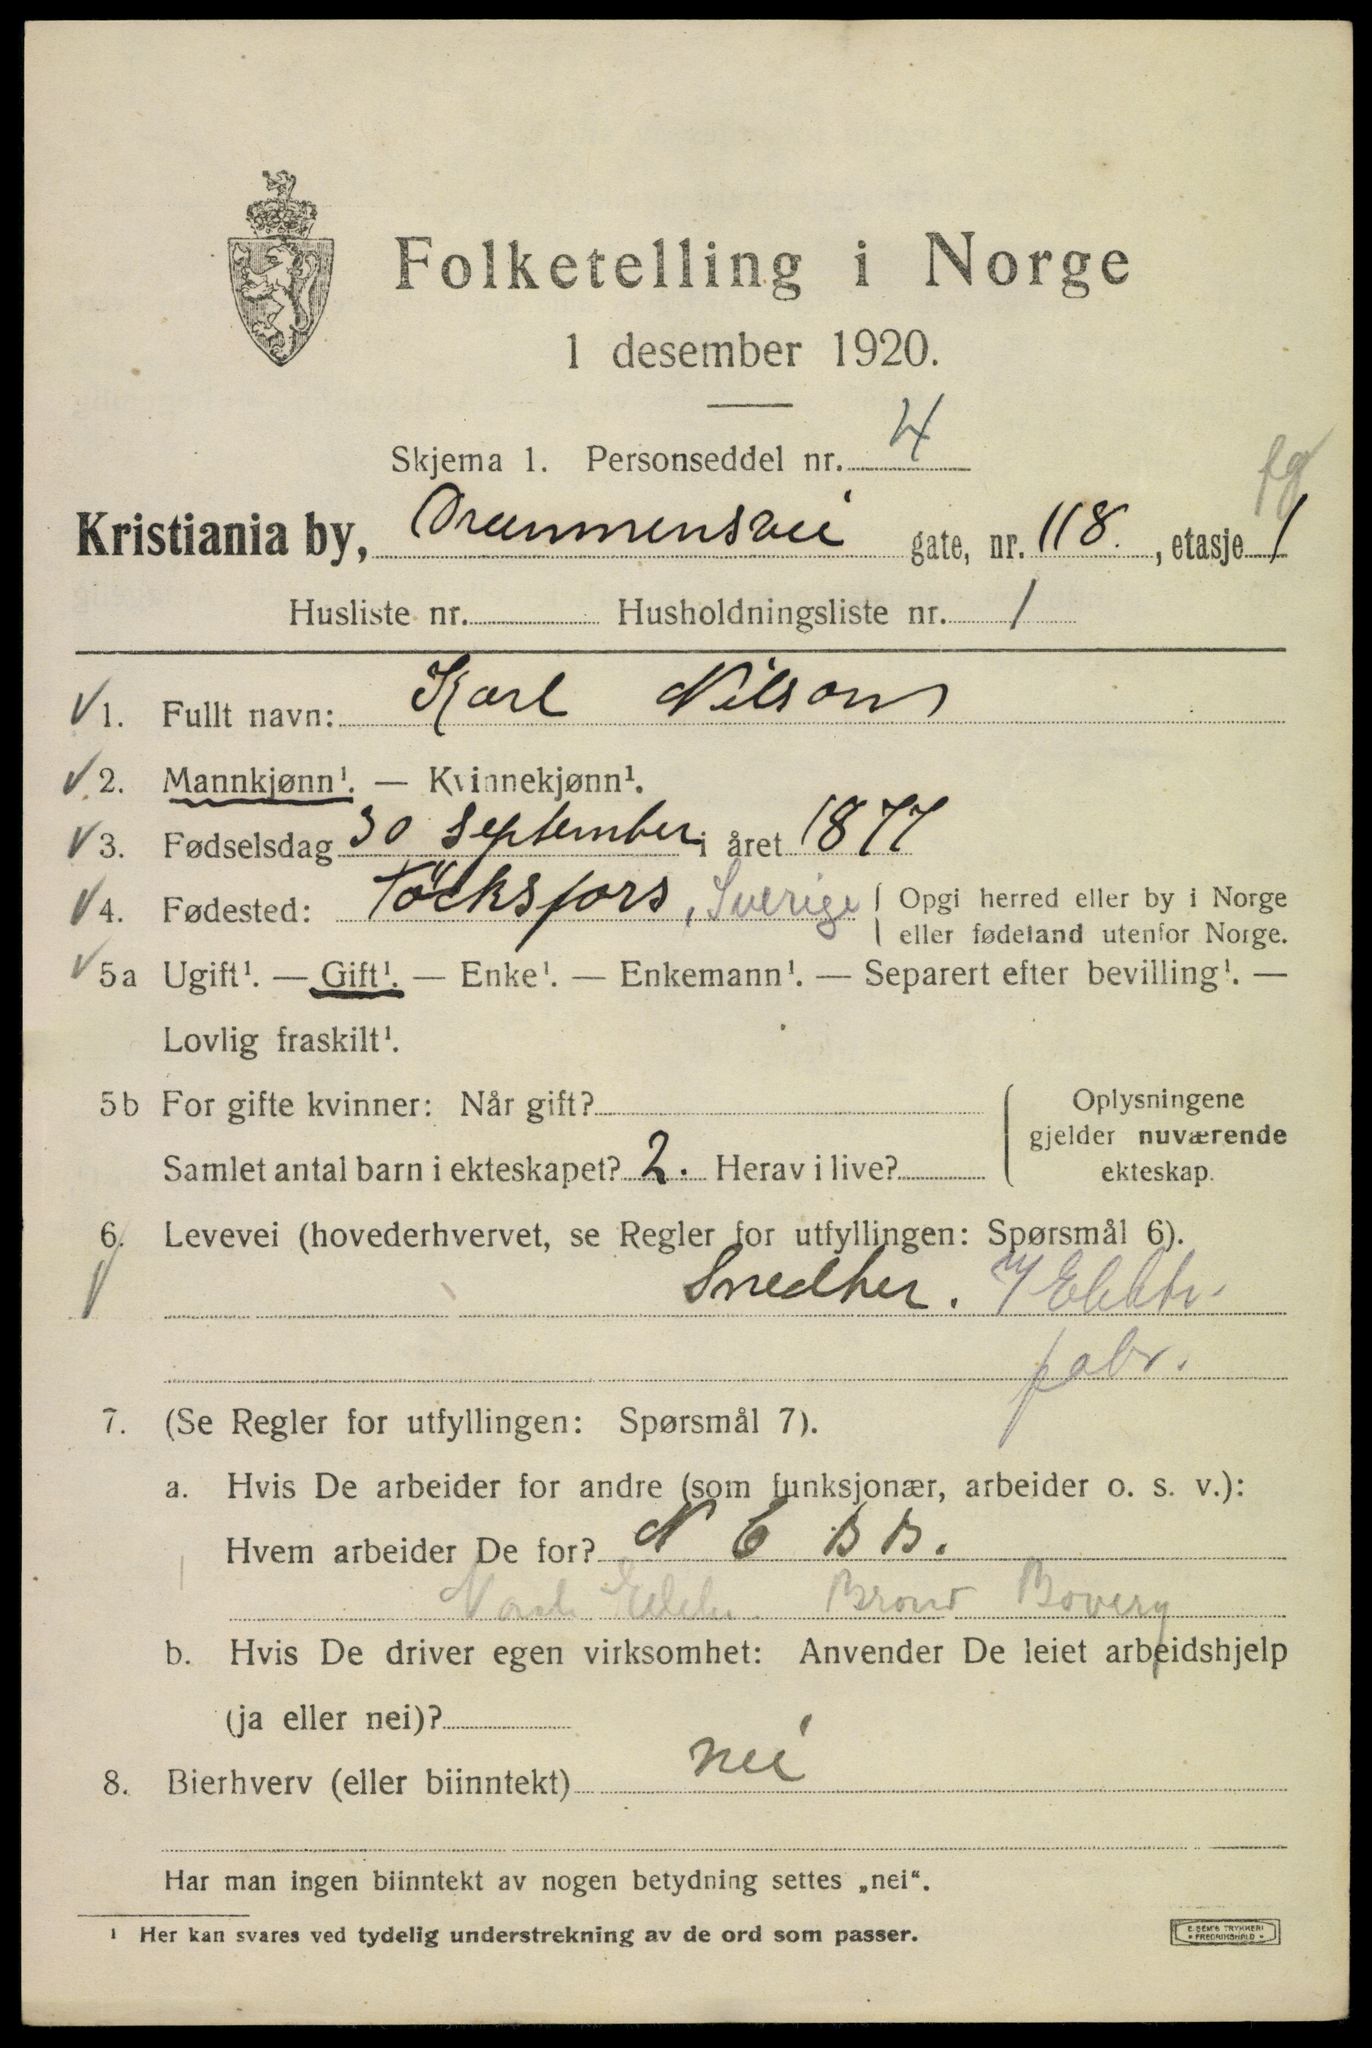 Folketelling i Norge
1 desember 1920.
Skjema 1. Personseddel nr. 4
fg
Kristiania by, Drammensvei gate, nr. 118., etasje 1
Husliste nr. Husholdningsliste nr. 1
1. Fullt navn: Karl Nilson
2. Mannkjønn¹. — Kvinnekjønn¹.
3. Fødselsdag 30 september i året 1877
4. Fødested: Töcksfors, Sverige { Opgi herred eller by i Norge
eller fødeland utenfor Norge.
5a Ugift¹. — Gift¹. — Enke¹. — Enkemann¹. — Separert efter bevilling¹. —
Lovlig fraskilt¹.
5b For gifte kvinner: Når gift? { Oplysningene
gjelder nuværende
Samlet antal barn i ekteskapet? 2. Herav i live? ekteskap.
6. Levevei (hovederhvervet, se Regler for utfyllingen: Spørsmål 6).
Snedker. v/ Elektr.
fabr.
7. (Se Regler for utfyllingen: Spørsmål 7).
a. Hvis De arbeider for andre (som funksjonær, arbeider o. s. v.):
Hvem arbeider De for? N E B B.
Norsk Elektr. Brown Bovery
b. Hvis De driver egen virksomhet: Anvender De leiet arbeidshjelp
(ja eller nei)?
8. Bierhverv (eller biinntekt) nei
Har man ingen biinntekt av nogen betydning settes „nei“.
¹ Her kan svares ved tydelig understrekning av de ord som passer.
E. SEM'S TRYKKERI
• FREDRIKSHALD •